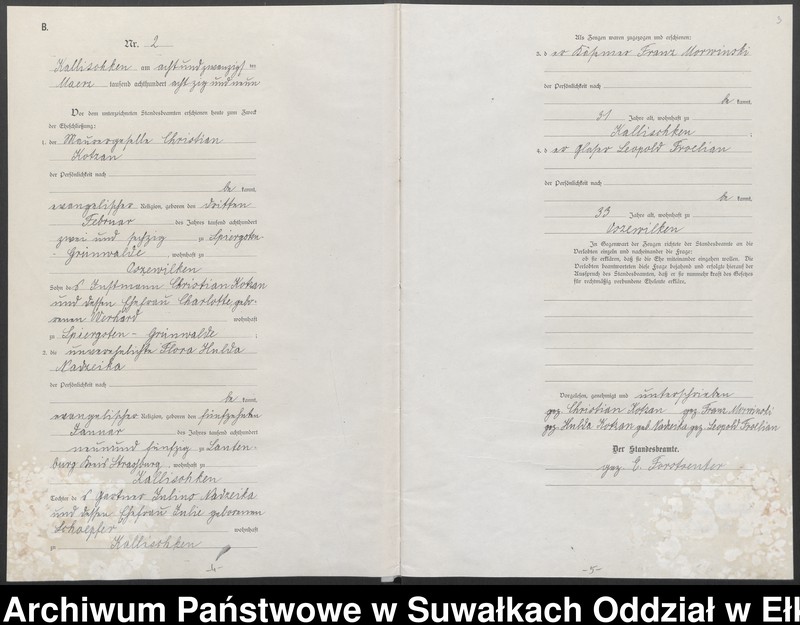 B.
Nr. 2
Kallischken am acht und zwanzigsten
Maerz tausend achthundert achtzig und neun
Vor dem unterzeichneten Standesbeamten erschienen heute zum Zweck
der Eheschließung:
1. der Maurergeselle Christian
Kotzan
der Persönlichkeit nach
be kannt,
evangelischer Religion, geboren den dritten
Februar des Jahres tausend achthundert
zwei und sechzig zu Spiergsten-
- Grünwalde, wohnhaft zu
Sohn des Instmann Christian Kotzan
und dessen Ehefrau Charlotte gebo-
renen wohnhaft
zu Spiergsten - Grünwalde;
2. die unverehelichte Flora Hulda
Nadzeika
der Persönlichkeit nach
be kannt,
evangelischer Religion, geboren den fünfzehnten
Januar des Jahres tausend achthundert
neunundfünfzig zu Lauten-
burg Kreis Strasburg, wohnhaft zu
Kallischken
Tochter des Gärtner Nadzeika
und dessen Ehefrau Julie geborenen
Schoepfer wohnhaft
zu Kallischken
-4-
3
Als Zeugen waren zugezogen und erschienen:
3. der Käthner Franz Morwinski
der Persönlichkeit nach
be kannt,
51 Jahre alt, wohnhaft zu
Kallischken;
4. der Glaser Leopold Troelian
der Persönlichkeit nach
be kannt,
33 Jahre alt, wohnhaft zu
In Gegenwart der Zeugen richtete der Standesbeamte an die
Verlobten einzeln und nacheinander die Frage:
ob sie erklären, daß sie die Ehe miteinander eingehen wollen. Die
Verlobten beantworteten diese Frage bejahend und erfolgte hierauf der
Ausspruch des Standesbeamten, daß er sie nunmehr kraft des Gesetzes
für rechtmäßig verbundene Eheleute erkläre.
Vorgelesen, genehmigt und unterschrieben
gez. Christian Kotzan gez. Franz Morwinski
gez. Hulda Kotzan geb. Nadzeika gez. Leopold Troelian
Der Standesbeamte.
gez. E. Forstreuter
-5-
Archiwum Państwowe w Suwałkach Oddział w Ełk